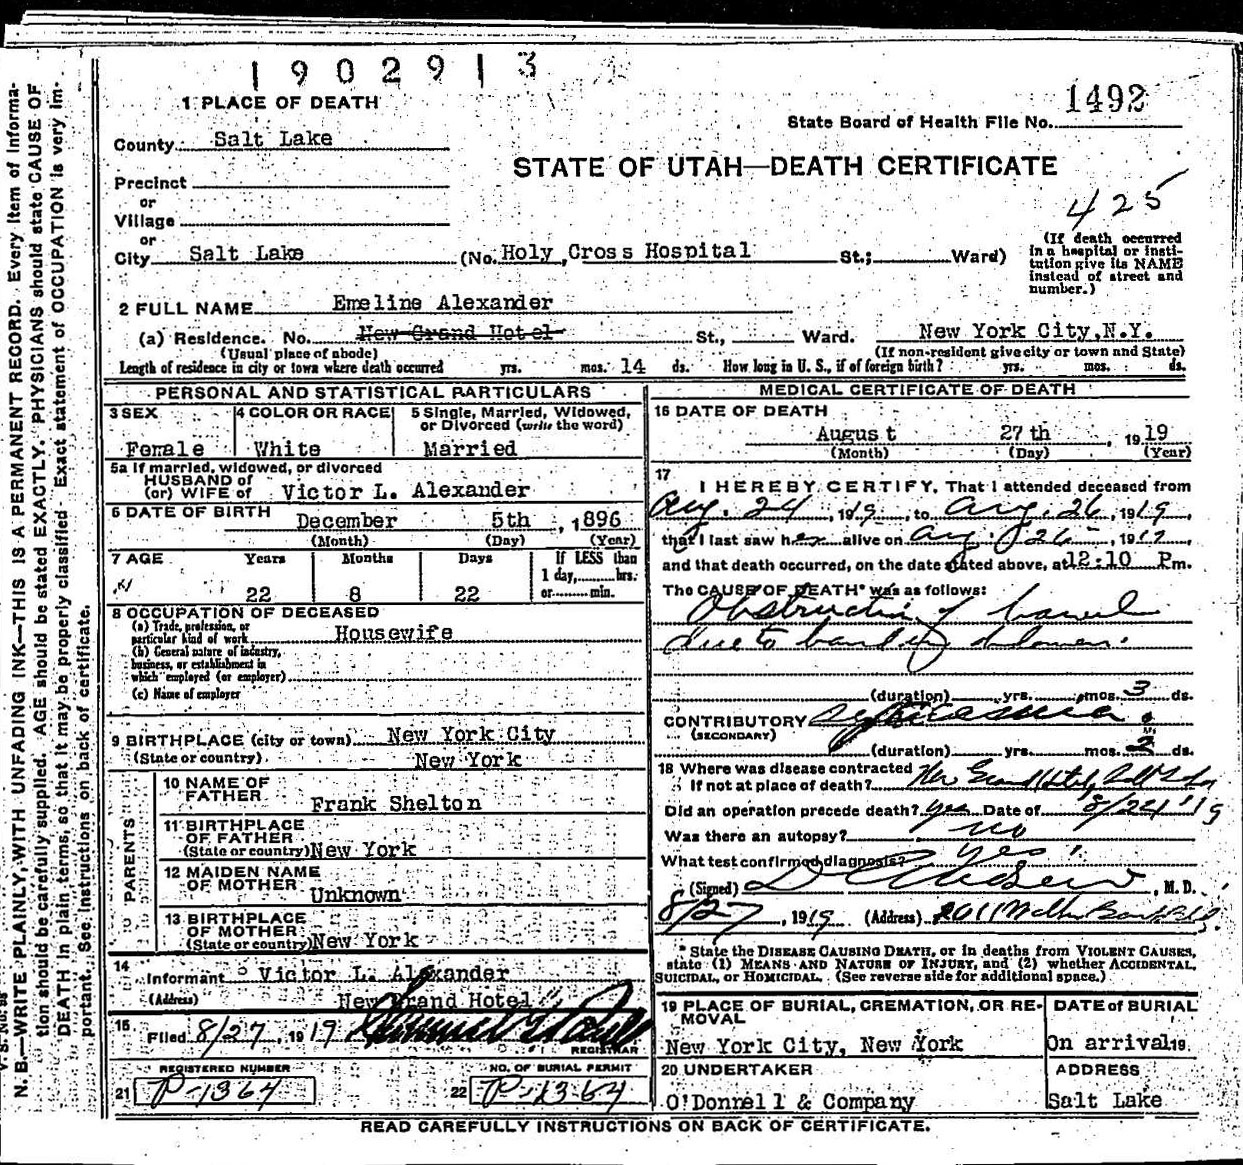 1902913
1492
1 PLACE OF DEATH
State Board of Health File No.
County Salt Lake
STATE OF UTAH—DEATH CERTIFICATE
Precinct
or
Village
425
or
City Salt Lake (No. Holy Cross Hospital St.; Ward)
(If death occurred in a hospital or institution give its NAME instead of street and number.)
2 FULL NAME Emeline Alexander
(a) Residence. No. New Grand Hotel St., Ward. New York City, N.Y.
(Usual place of abode) (If non-resident give city or town and State)
Length of residence in city or town where death occurred yrs. mos. 14 ds. How long in U. S., if of foreign birth? yrs. mos. ds.
PERSONAL AND STATISTICAL PARTICULARS
3 SEX 4 COLOR OR RACE 5 Single, Married, Widowed, or Divorced (write the word)
Female White Married
5a If married, widowed, or divorced
HUSBAND of
(or) WIFE of Victor L. Alexander
6 DATE OF BIRTH December 5th, 1896
(Month) (Day) (Year)
7 AGE Years Months Days If LESS than
1 day, hrs.
or min.
22 8 22
8 OCCUPATION OF DECEASED
(a) Trade, profession, or
particular kind of work Housewife
(b) General nature of industry,
business, or establishment in
which employed (or employer)
(c) Name of employer
9 BIRTHPLACE (city or town) New York City
(State or country) New York
PARENTS
10 NAME OF
FATHER Frank Shelton
11 BIRTHPLACE
OF FATHER
(State or country) New York
12 MAIDEN NAME
OF MOTHER Unknown
13 BIRTHPLACE
OF MOTHER
(State or country) New York
14
Informant Victor L. Alexander
(Address) New Grand Hotel
15
Filed 8/27, 1919
REGISTRAR
REGISTERED NUMBER NO. OF BURIAL PERMIT
21 P-1364 22 P-1364
MEDICAL CERTIFICATE OF DEATH
16 DATE OF DEATH
August 27th, 1919
(Month) (Day) (Year)
17
I HEREBY CERTIFY, That I attended deceased from
Aug. 24, 1919, to Aug. 26, 1919,
that I last saw her alive on Aug. 26, 1919
and that death occurred, on the date stated above, at 12:10 P m.
The CAUSE OF DEATH* was as follows:
Obstruction of bowel
due to band of
(duration) yrs. mos. 3 ds.
CONTRIBUTORY
(SECONDARY)
(duration) yrs. mos. 2 ds.
18 Where was disease contracted New Grand Hotel, Salt Lake
If not at place of death?
Did an operation precede death? yes Date of 8/24/19
Was there an autopsy? no
What test confirmed diagnosis? yes
(Signed) M. D.
8/27, 1919 (Address) 2011 Walker Bank Bld.
* State the DISEASE CAUSING DEATH, or in deaths from VIOLENT CAUSES,
state (1) MEANS AND NATURE OF INJURY, and (2) whether ACCIDENTAL,
SUICIDAL, or HOMICIDAL. (See reverse side for additional space.)
19 PLACE OF BURIAL, CREMATION, OR REMOVAL DATE OF BURIAL
New York City, New York On arrival 19
20 UNDERTAKER ADDRESS
O'Donnell & Company Salt Lake
READ CAREFULLY INSTRUCTIONS ON BACK OF CERTIFICATE.
N. B.—WRITE PLAINLY, WITH UNFADING INK—THIS IS A PERMANENT RECORD. Every item of information should be carefully supplied. AGE should be stated EXACTLY. PHYSICIANS should state CAUSE OF DEATH in plain terms, so that it may be properly classified. Exact statement of OCCUPATION is very important. See instructions on back of certificate.